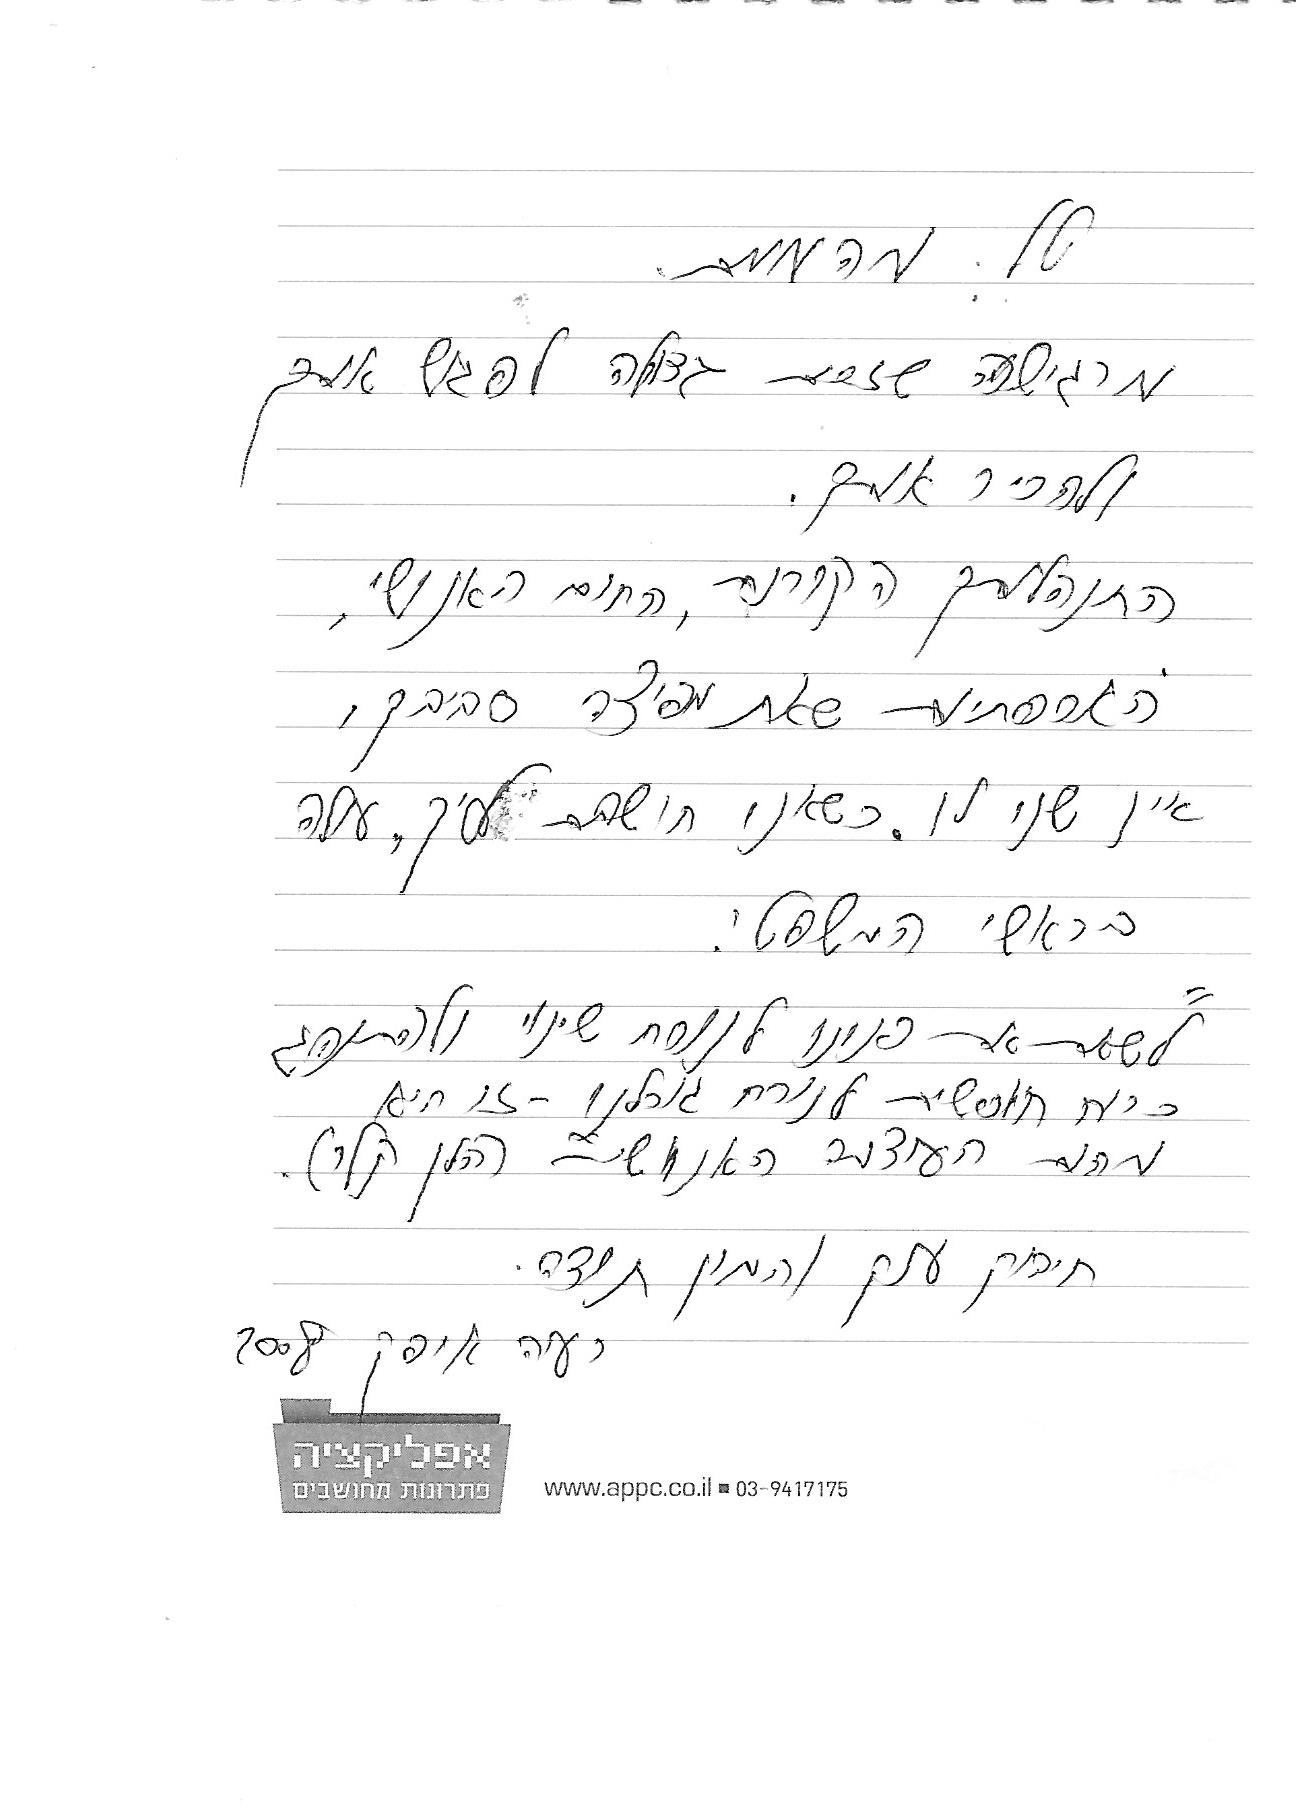 טל. מהממת.
מרגישה שזכות גדולה לפגוש אותך
ולהכיר אותך.
התנהלותך הקורנת, החום האנושי,
האכפתיות שאת מפיצה סביבך,
אין שני לו. כשאני חושבת עליך, עולה
בראשי המשפט:
"לשאת את פנינו לנוכח שינוי ולהתנהג
כרוח חופשית לנוכח גורלנו - זו היא
מהות העוצמה האנושית" (הלן קלר).
חיבוק ענק והמון תודה.
רעיה אופק 2008
אפליקציה
פתרונות מחושבים
www.appc.co.il ■ 03-9417175